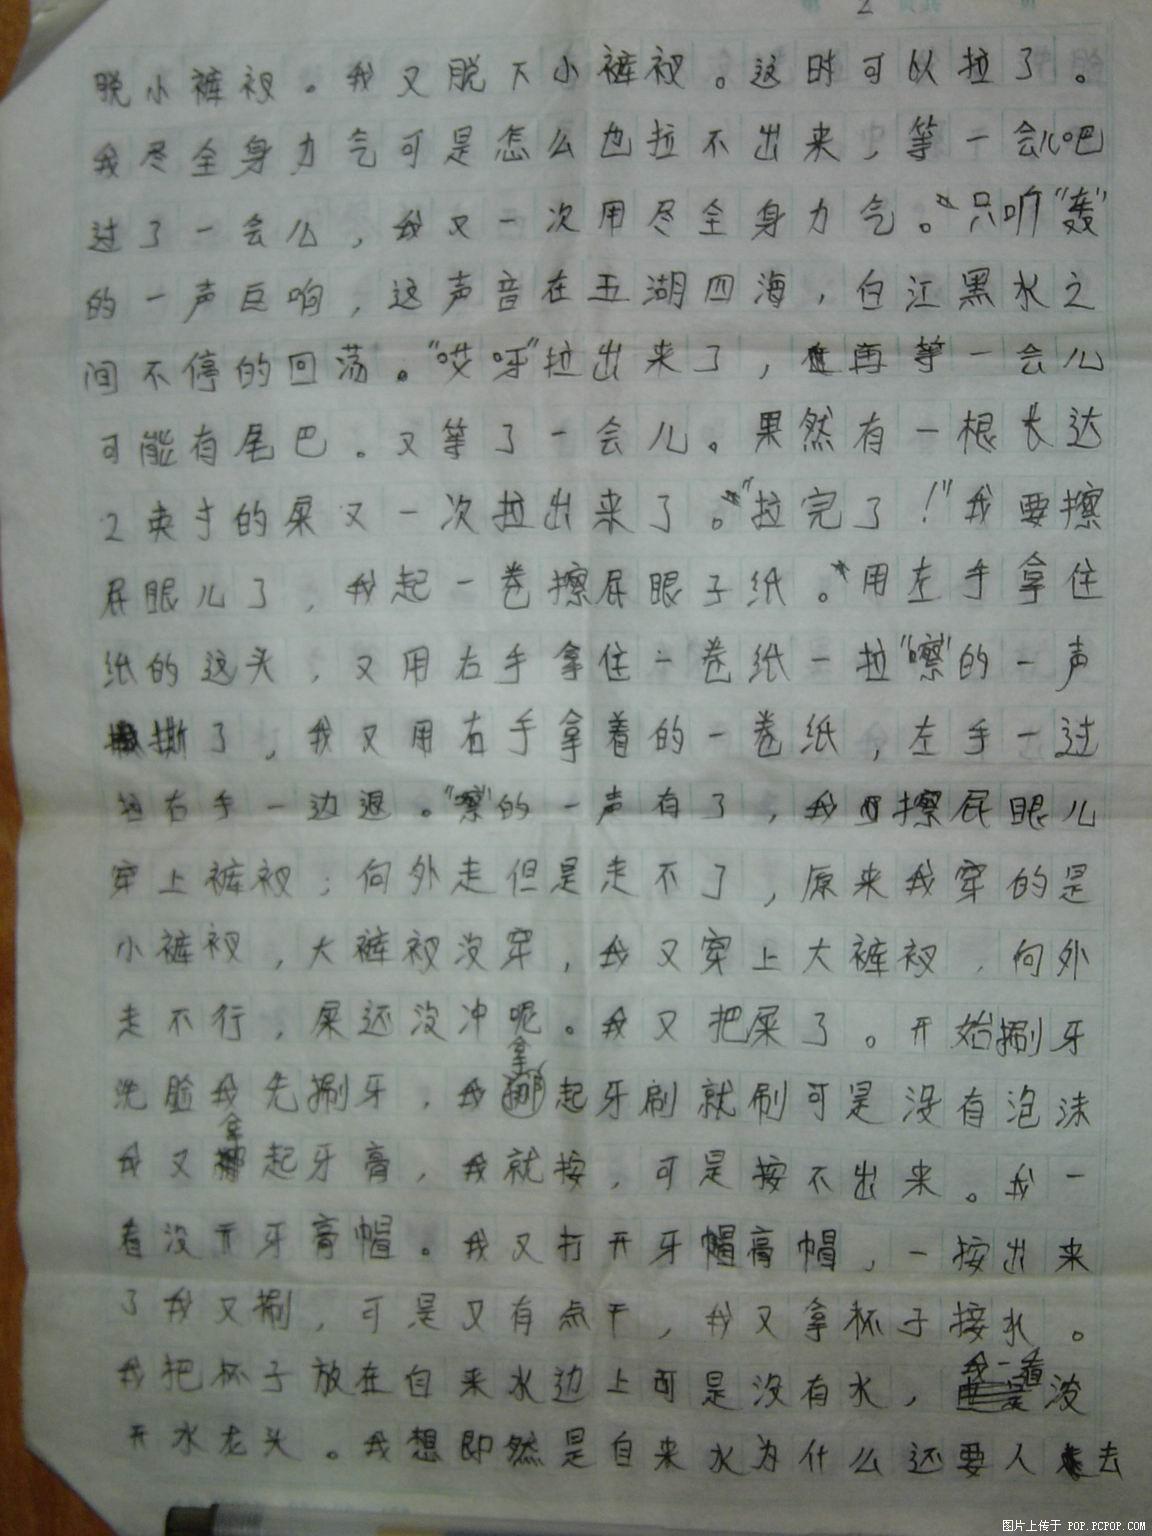 2
脱小裤衩。我又脱下小裤衩。这时可以拉了。
我尽全身力气可是怎么也拉不出来,等一会儿吧
过了一会儿,我又一次用尽全身力气。只听“轰”
的一声巨响,这声音在五湖四海,白江黑水之
间不停的回荡。“哎呀”拉出来了,再等一会儿
可能有尾巴。又等了一会儿。果然有一根长达
2英寸的屎又一次拉出来了。“拉完了!”我要擦
屁眼儿了,我起一卷擦屁眼子纸。用左手拿住
纸的这头,又用右手拿住一卷纸一拉“嚓”的一声
撕了,我又用右手拿着的一卷纸,左手一过
右手一边退。“嚓”的一声有了,我擦屁眼儿
穿上裤衩;向外走但是走不了,原来我穿的是
小裤衩,大裤衩没穿,我又穿上大裤衩,向外
走不行,屎还没冲呢。我又把屎了。开始捌牙
洗脸我先捌牙,我拿起牙刷就刷可是没有泡沫
我又拿起牙膏,我就按,可是按不出来。我一
看没开牙膏帽。我又打开牙膏帽,一按出来
了我又捌,可是又有点干,我又拿杯子接水。
我把杯子放在自来水边上可是没有水,我一看没
开水龙头。我想即然是自来水为什么还要人去
图片上传于 POP.PCPOP.COM